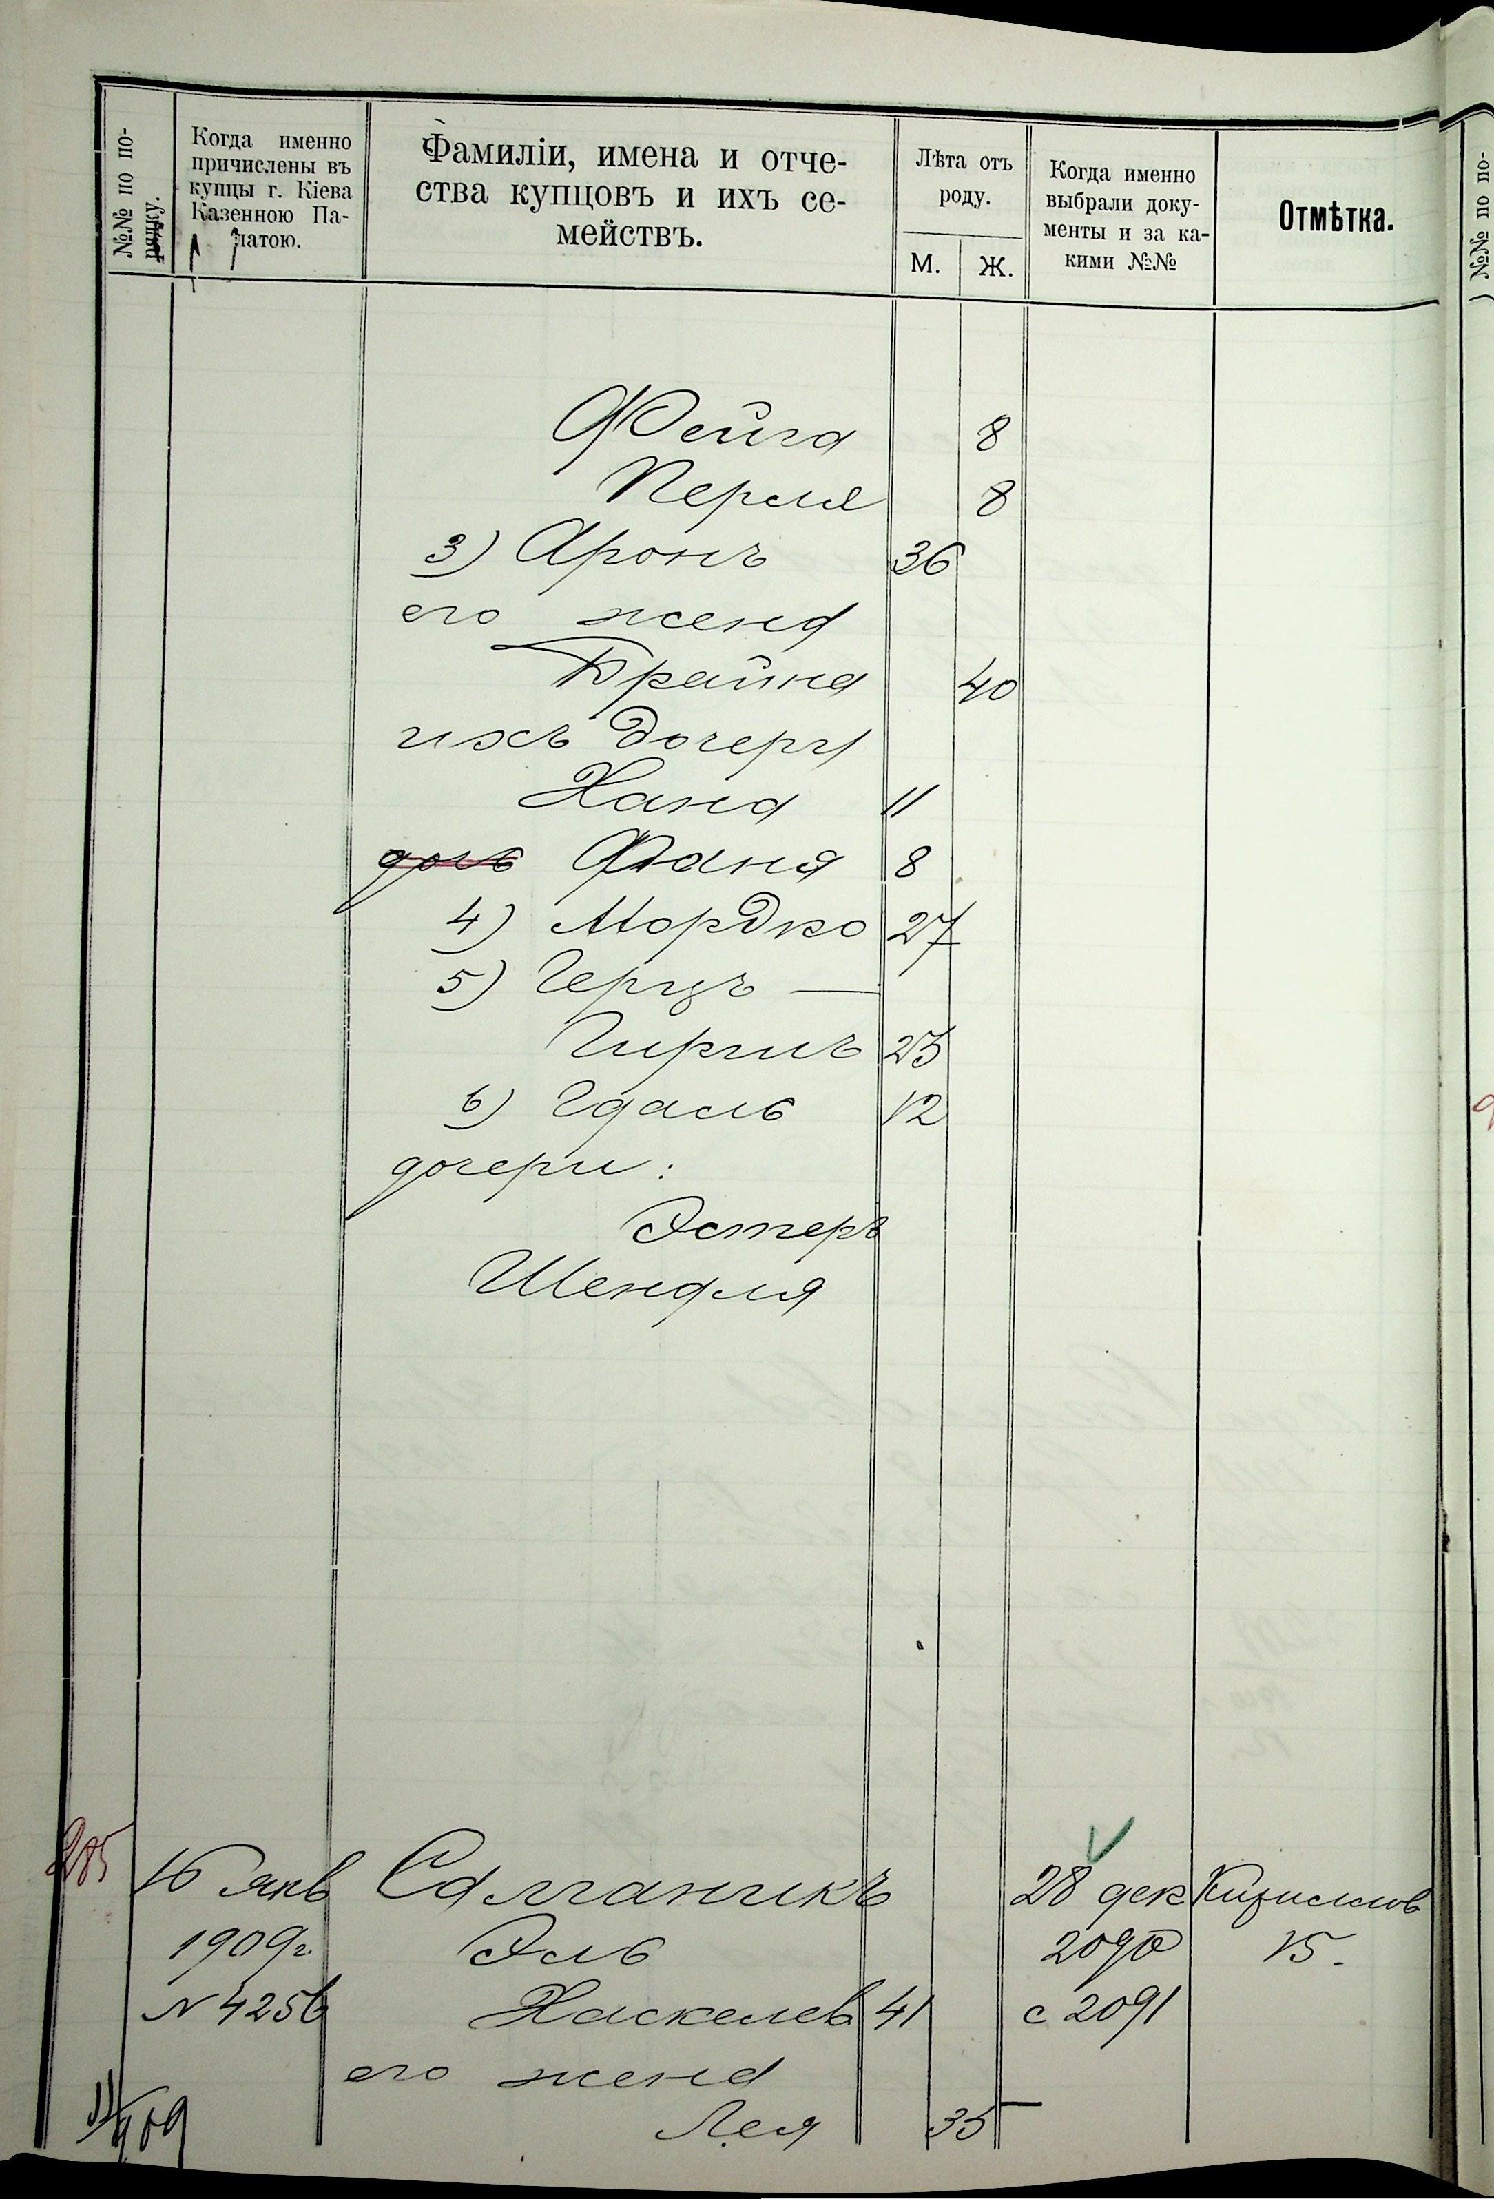 №№ по по-
рядку.
Когда именно
причислены въ
купцы г. Кіева
Казенною Па-
латою.
Фамиліи, имена и отче-
ства купцовъ и ихъ се-
мействъ.
Лѣта отъ
роду.
М.
Ж.
Когда именно
выбрали доку-
менты и за ка-
кими №№
Отмѣтка.
№№ по по-
Фейга 8
Перля 8
3) Аронъ 36
его жена
Брайна 40
ихъ дочери
Хана 11
дочь Фаня 8
4) Мордко 27
5) Герцъ —
Гиршъ 25
6) Гдаль 12
дочери:
Эстеръ
Шендля
285 16 янв Салганикъ 28 дек
1909г. Эль 2090 15.
N 4256 Хаскелев 41 с 2091
его жена
Лея 35